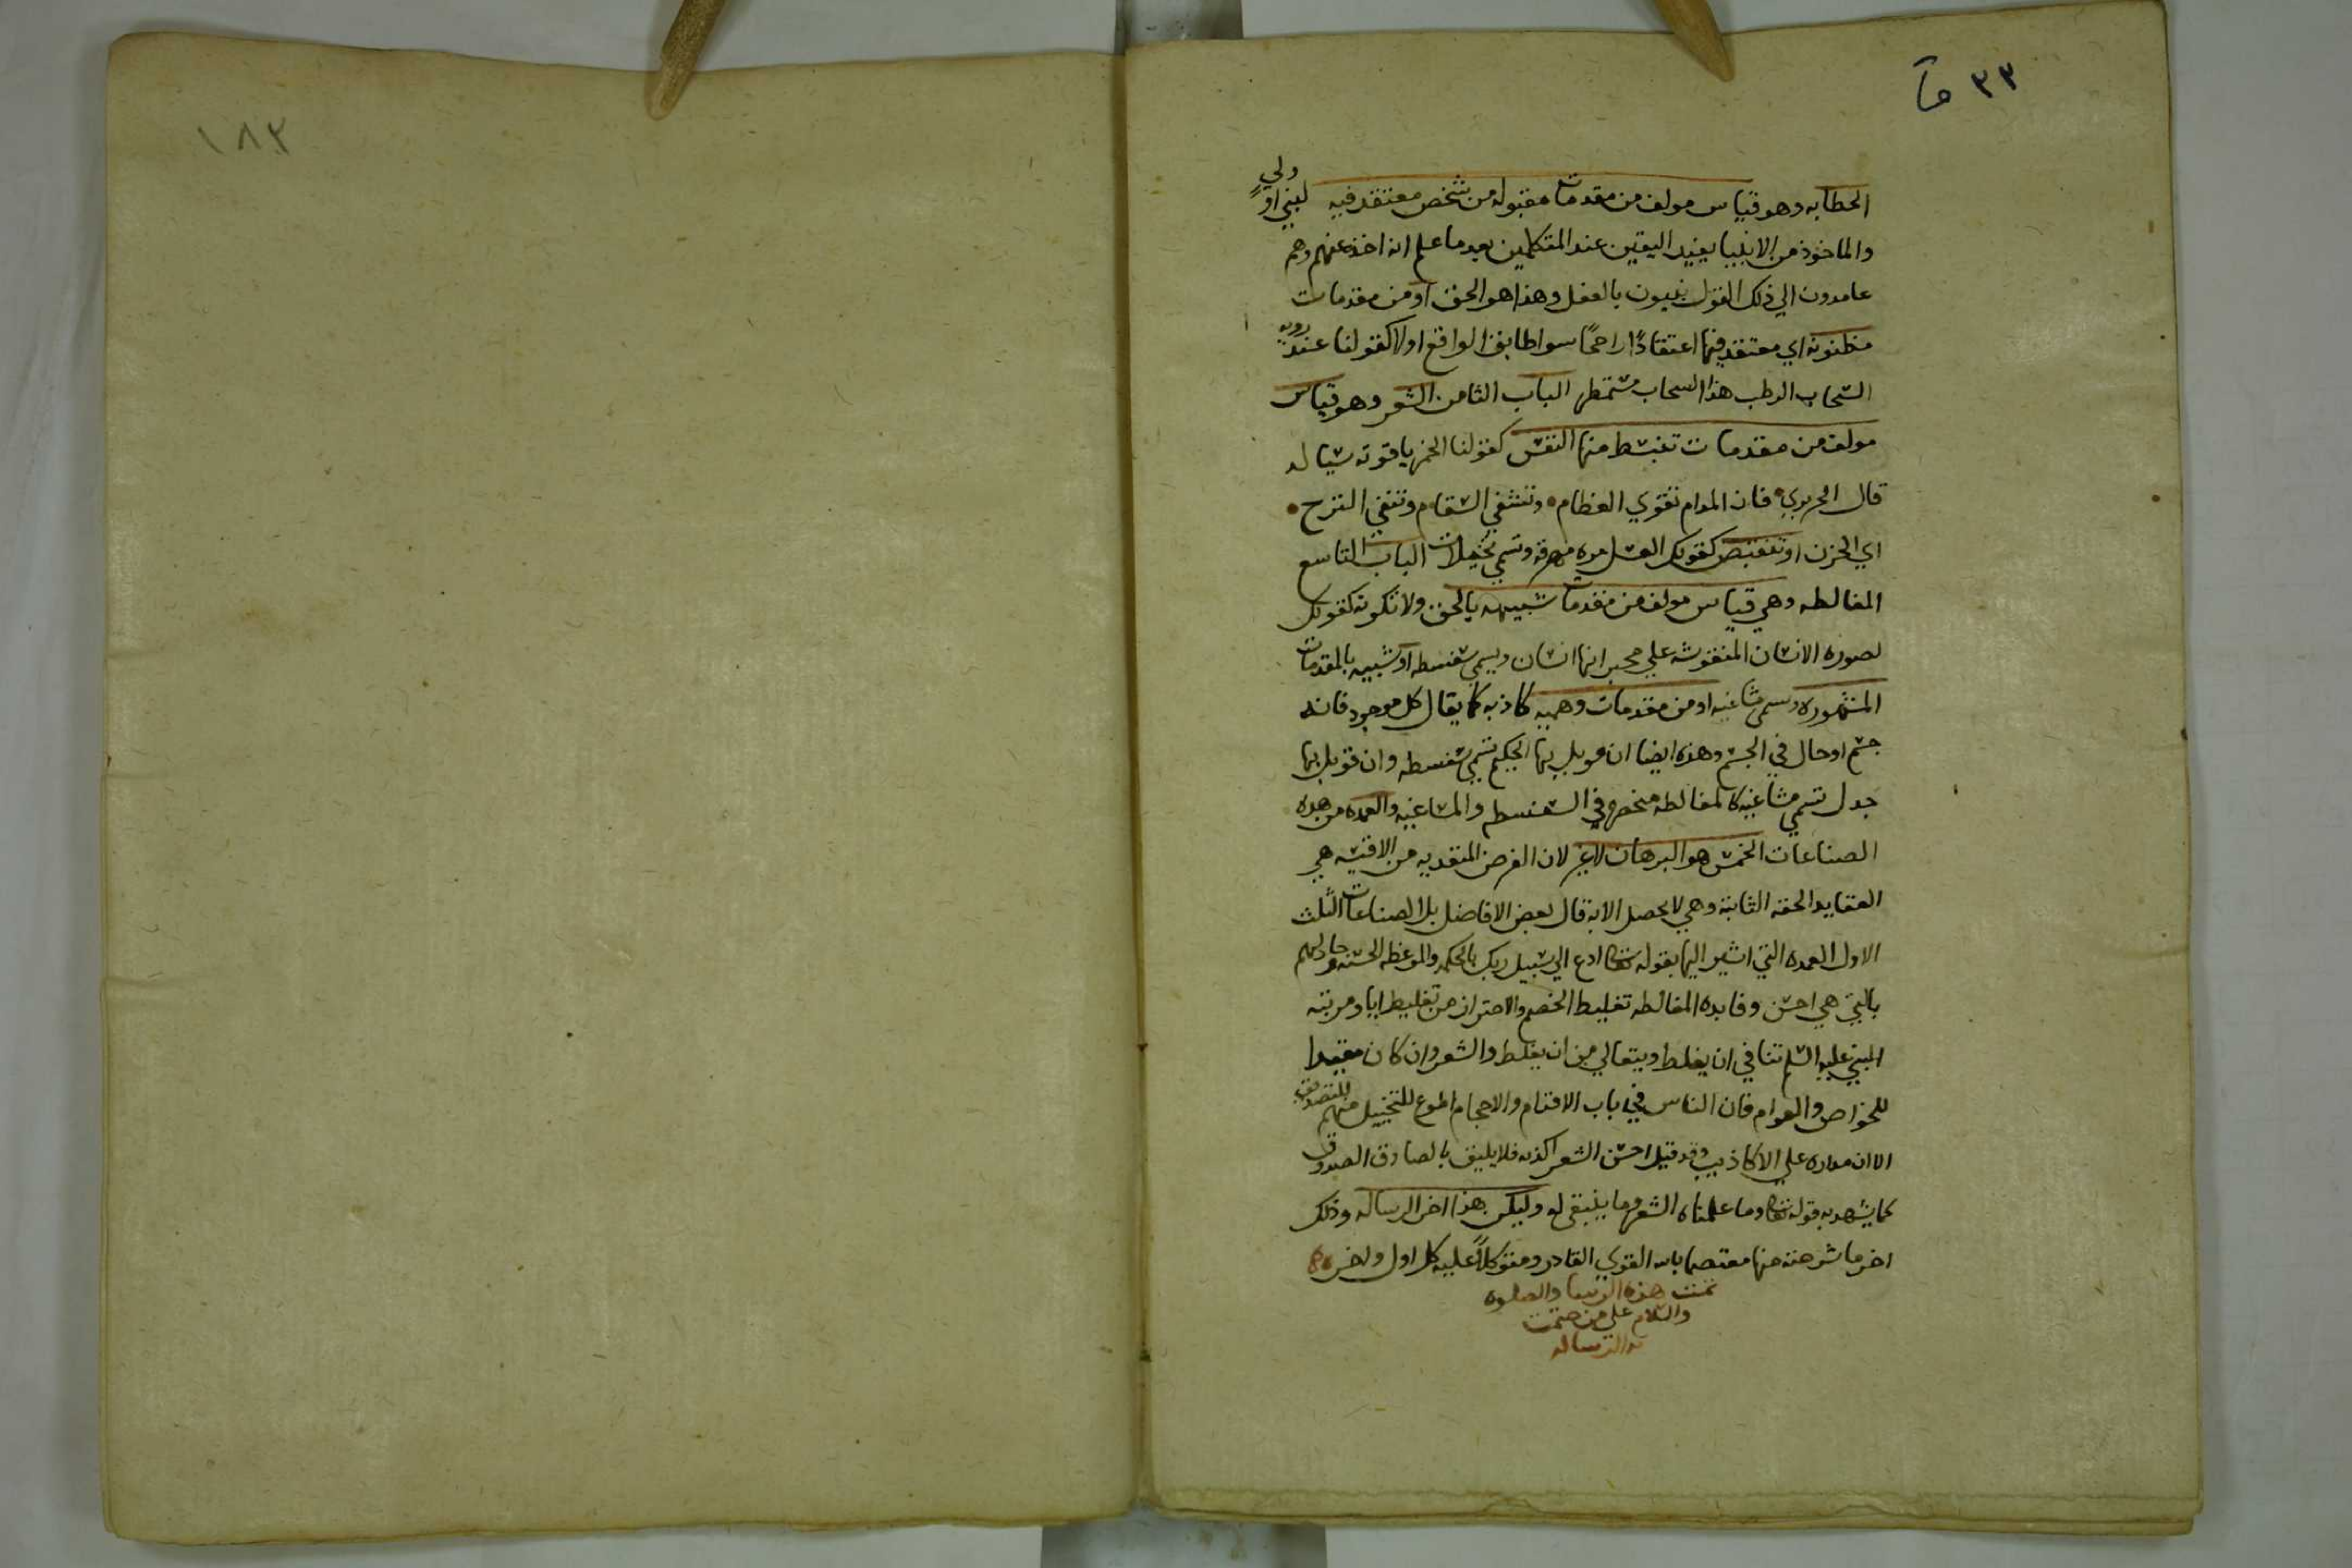 ٣٣
الخطابه وهو قياس مولف من مقدمات مقبوله من شخص معتقد فيه لنبي او ولي
والماخوذ من الانبيا يفيد اليقين عند المتكلمين بعد ما علم انه اخذ عنهم وهم
عامدون الي ذلك القول بالعقل وهذا هو الحق او من مقدمات
مظنونه اي معتقد فيها اعتقادًا راجحًا سوا طابق الواقع اولا كقولنا عند رويه
السحاب الرطب هذا السحاب مستمطر الباب الثامن الشعر وهو قياس
مولف من مقدمات تنبسط منها النفس كقولنا الخمر ياقوته سياله
قال الحريري فان المدام تقوي العظام وتشفي السقام وتنفي الترح
اي الحزن او تنقبض كقولك العسل مره وتسمي مخيلات الباب التاسع
المغالطه وهي قياس مولف من مقدمات شبيهه بالحق ولا تكونه كقولك
لصوره الانسان المنقوشه علي حجر انها انسان ويسمي سفسطه او شبيه بالمقدمات
المشهوره وتسمي مشاغبه او من مقدمات وهميه كاذبه كما يقال كل موجود فانه
جسم او حال في الجسم وهذه ايضا ان قوبل بها الحكيم تسمي سفسطه وان قوبل بها
جدل تسمي مشاغبه كالمغالطه منحصره في السفسطه والمشاغبه والعمده من هذه
الصناعات الخمس هو البرهان لا غير لان الغرض من الاقيسه هي
العقايد الحقه الثابته وهي لا يحصل الا به قال بعض الافاضل بل الصناعات الثلث
الاول العمده التي اشير اليها بقوله تعالي ادع الي سبيل ربك بالحكمه والموعظه الحسنه وجادلهم
بالتي هي احسن وفايده المغالطه تغليط الخصم والاحتراز من تغليط اياه ومرتبه
النبي عليه السلم تنافي ان يغلط ويتعالي من ان يغلط والشعر وان كان مفيدا
للخواص والعوام فان الناس في باب الاقدام والاحجام اطوع للتخييل منهم للتصديق
الا ان مداره علي الاكاذيب وقد قيل احسن الشعر اكذبه فلا يليق بالصادق الصدوق
كما يشهد به قوله تعالي وما علمناه الشعر وما ينبغي له وليكن هذا اخر الرساله وذلك
اخر ما شرحته منها معتصما بالله القوي القادر ومتوكلًا عليه كل اول واخر
تمت هذه الرساله والصلوه
والسلام علي من ختمت
به الرساله
١٨٢